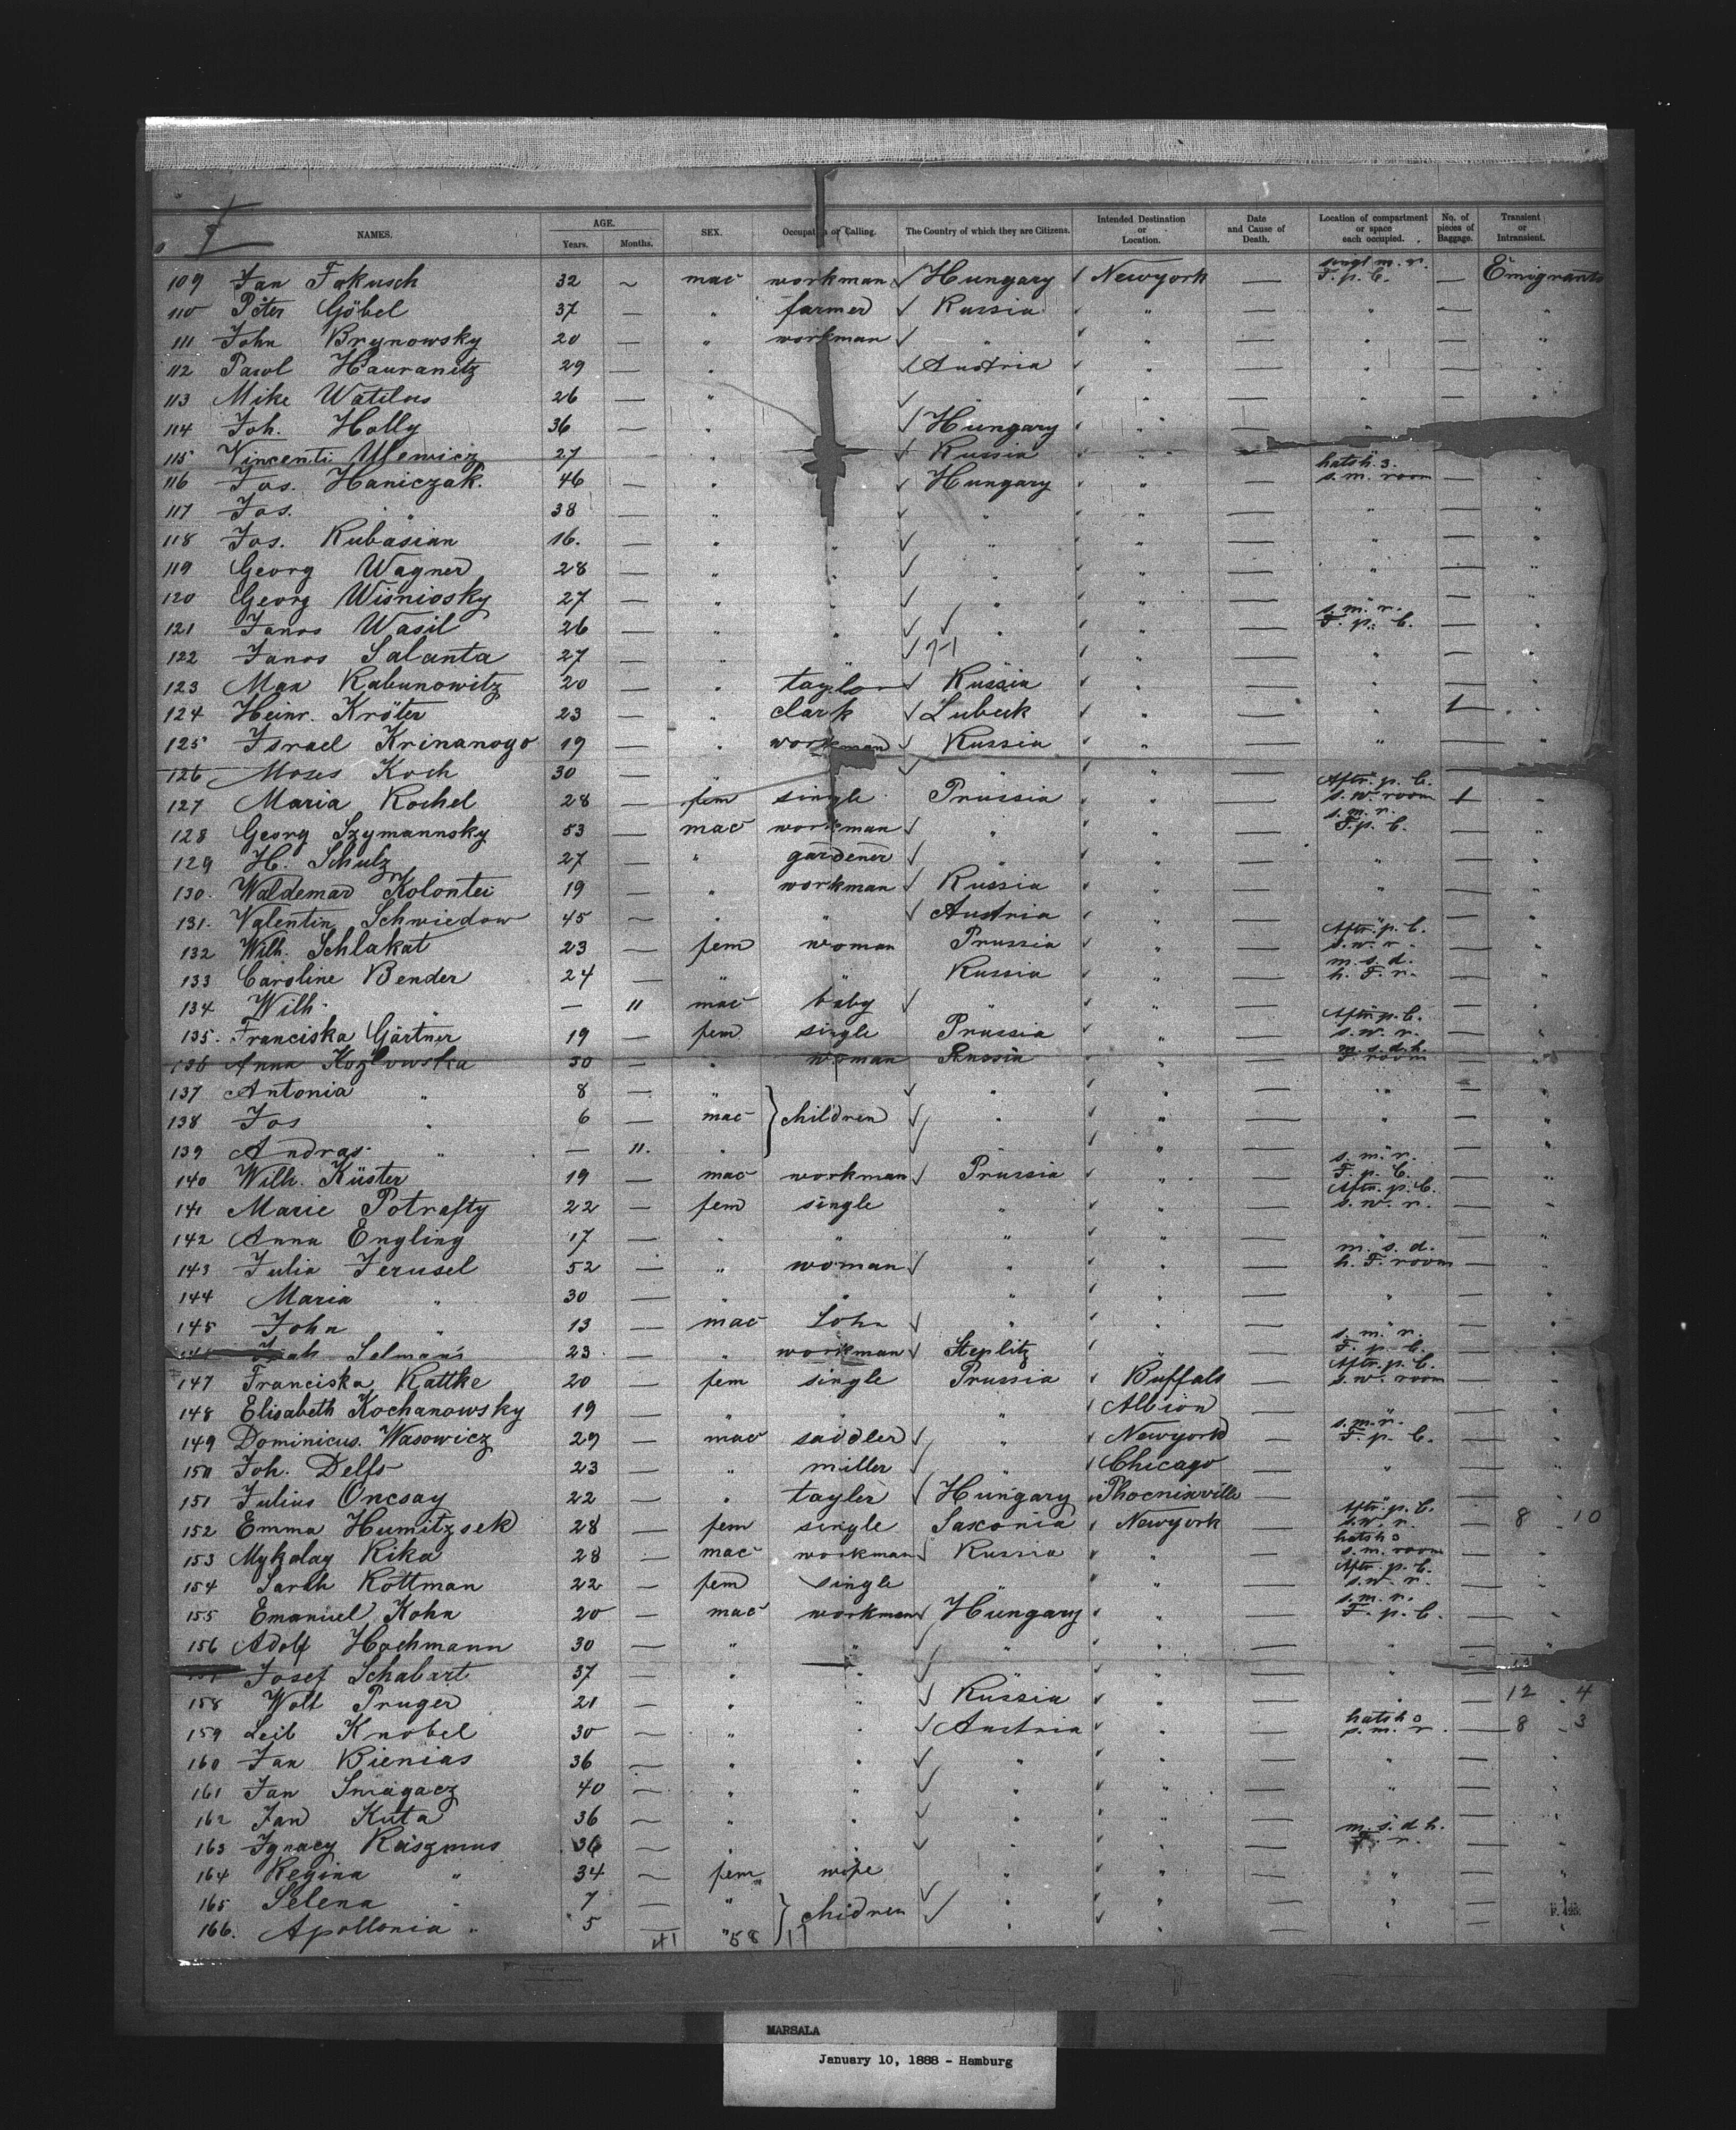 NAMES. AGE. Years. Months. SEX. Occupation or Calling. The Country of which they are Citizens. Intended Destination or Location. Date and Cause of Death. Location of compartment or space each occupied. No. of pieces of Baggage. Transient or Intransient.
109 Jan Fakusch 32 ~ mac workman Hungary Newyork — singl m. r. F. p. C. — Emigrants
110 Peter Göbel 37 — " farmer Russia " — " — "
111 John Brynowsky 20 — " workman " " — " — "
112 Pawl Hauranitz 29 — " Austria " — " — "
113 Mike 26 — " " " — " — "
114 Joh. Holly 36 — " Hungary " — "
115 Vincenti Ulewicz 27 — " Russia " —
116 Jos. Haniczak. 46 — " Hungary " — hatsh. 3. s. m. room — "
117 Jos. " 38 — " " " — " — "
118 Jos. Kubasian 16. — " " " " — " — "
119 Georg Wagner 28 — " " " " — " — "
120 Georg Wisniosky 27 — " " " " — " — "
121 Janos Wasil 26 — " " " " — s. m. r. F. p. C. — "
122 Janos Salanta 27 — " " " — " — "
123 Max Rabunowitz 20 — " taylor Russia " — " — "
124 Heinr. Kröter 23 — " clark Lubeck " — " 1 "
125 Israel Krinanogo 19 — " workman Russia " — " — "
126 Moses Koch 30 — " " " — " — "
127 Maria Kochel 28 — fem single Prussia " — Aftr. p. C. s. w. room 1 "
128 Georg Szymannsky 53 — mac workman " " — s. m. r. F. p. C. — "
129 H. Schulz 27 — " gardener " " — " — "
130. Waldemar Kolontei 19 — " workman Russia " — " — "
131. Valentin Schwiedow 45 — " " Austria " — " — "
132 Wilh. Schlakat 23 — fem woman Prussia " — Aftr. p. C. s. w. r. — "
133 Caroline Bender 24 — " " Russia " — m. s. d. h. F. r. — "
134 Wilh. " — 11 mac baby " " — " — "
135. Franciska Gärtner 19 — fem single Prussia " — Aftr. p. C. s. w. r. — "
136 Anna Kozlowska 30 — " woman Russia " — m. s. d. h. F. room — "
137 Antonia " 8 — " " " — " — "
138 Jos " 6 — mac children " " — " — "
139 Andras. " — 11. " " " — " — "
140 Wilh. Küster 19 — mac workman Prussia " — s. m. r. F. p. C. — "
141 Marie Potrafty 22 — fem single " " — Aftr. p. C. s. w. r. — "
142 Anna Engling 17 — " " " " — " — "
143 Julia Jerusel 52 — " woman " " — m. s. d. h. F. room — "
144 Maria " 30 — " " " " — " — "
145 John " 13 — mac Sohn " " — " — "
Selmans 23 — " workman Steplitz " — s. m. r. F. p. C. — "
147 Franciska Kattke 20 — fem single Prussia Buffalo — Aftr. p. C. s. w. room — "
148 Elisabeth Kochanowsky 19 — " " " Albion — " — "
149 Dominicus. Wasowicz 29 — mac saddler " Newyork — s. m. r. F. p. C. — "
150 Joh. Delfs 23 — " miller " Chicago — " — "
151 Julius Oncsay 22 — " tayler Hungary Phoenixville — " — "
152 Emma Humitzsek 28 — fem single Saxonia Newyork — Aftr. p. C. s. w. r. — 8 . 10
153 Mykolay Kika 28 — mac workman Russia " — hatsh 3 s. m. room — "
154 Sarah Rottman 22 — fem single " " — Aftr. p. C. s. w. r. — "
155 Emanuel Kohn 20 — mac workman Hungary " — s. m. r. F. p. C. — "
156 Adolf Hochmann 30 — " " " " — " — "
Josef Schabart 37 — " " " " — " —
158 Wolf Pruger 21 — " " Russia " — " — 12 . 4
159 Leib Knobel 30 — " " Austria " — hatsh 3 s. m. r. — 8 . 3
160 Jan Bienias 36 — " " " " — " — "
161 Jan Smagacz 40 — " " " " — " — "
162 Jan Kuta 36 ~ " " " " — " — "
163 Ignacy Raszmus 36 — " " " " — m. s. d. h. F. r. — "
164 Regina " 34 ~ fem wife " " — " — "
165 Selena " 7 — " children " " — " — "
166. Apollonia " 5 — " " " — " — "
41 58 17
MARSALA
January 10, 1888 - Hamburg